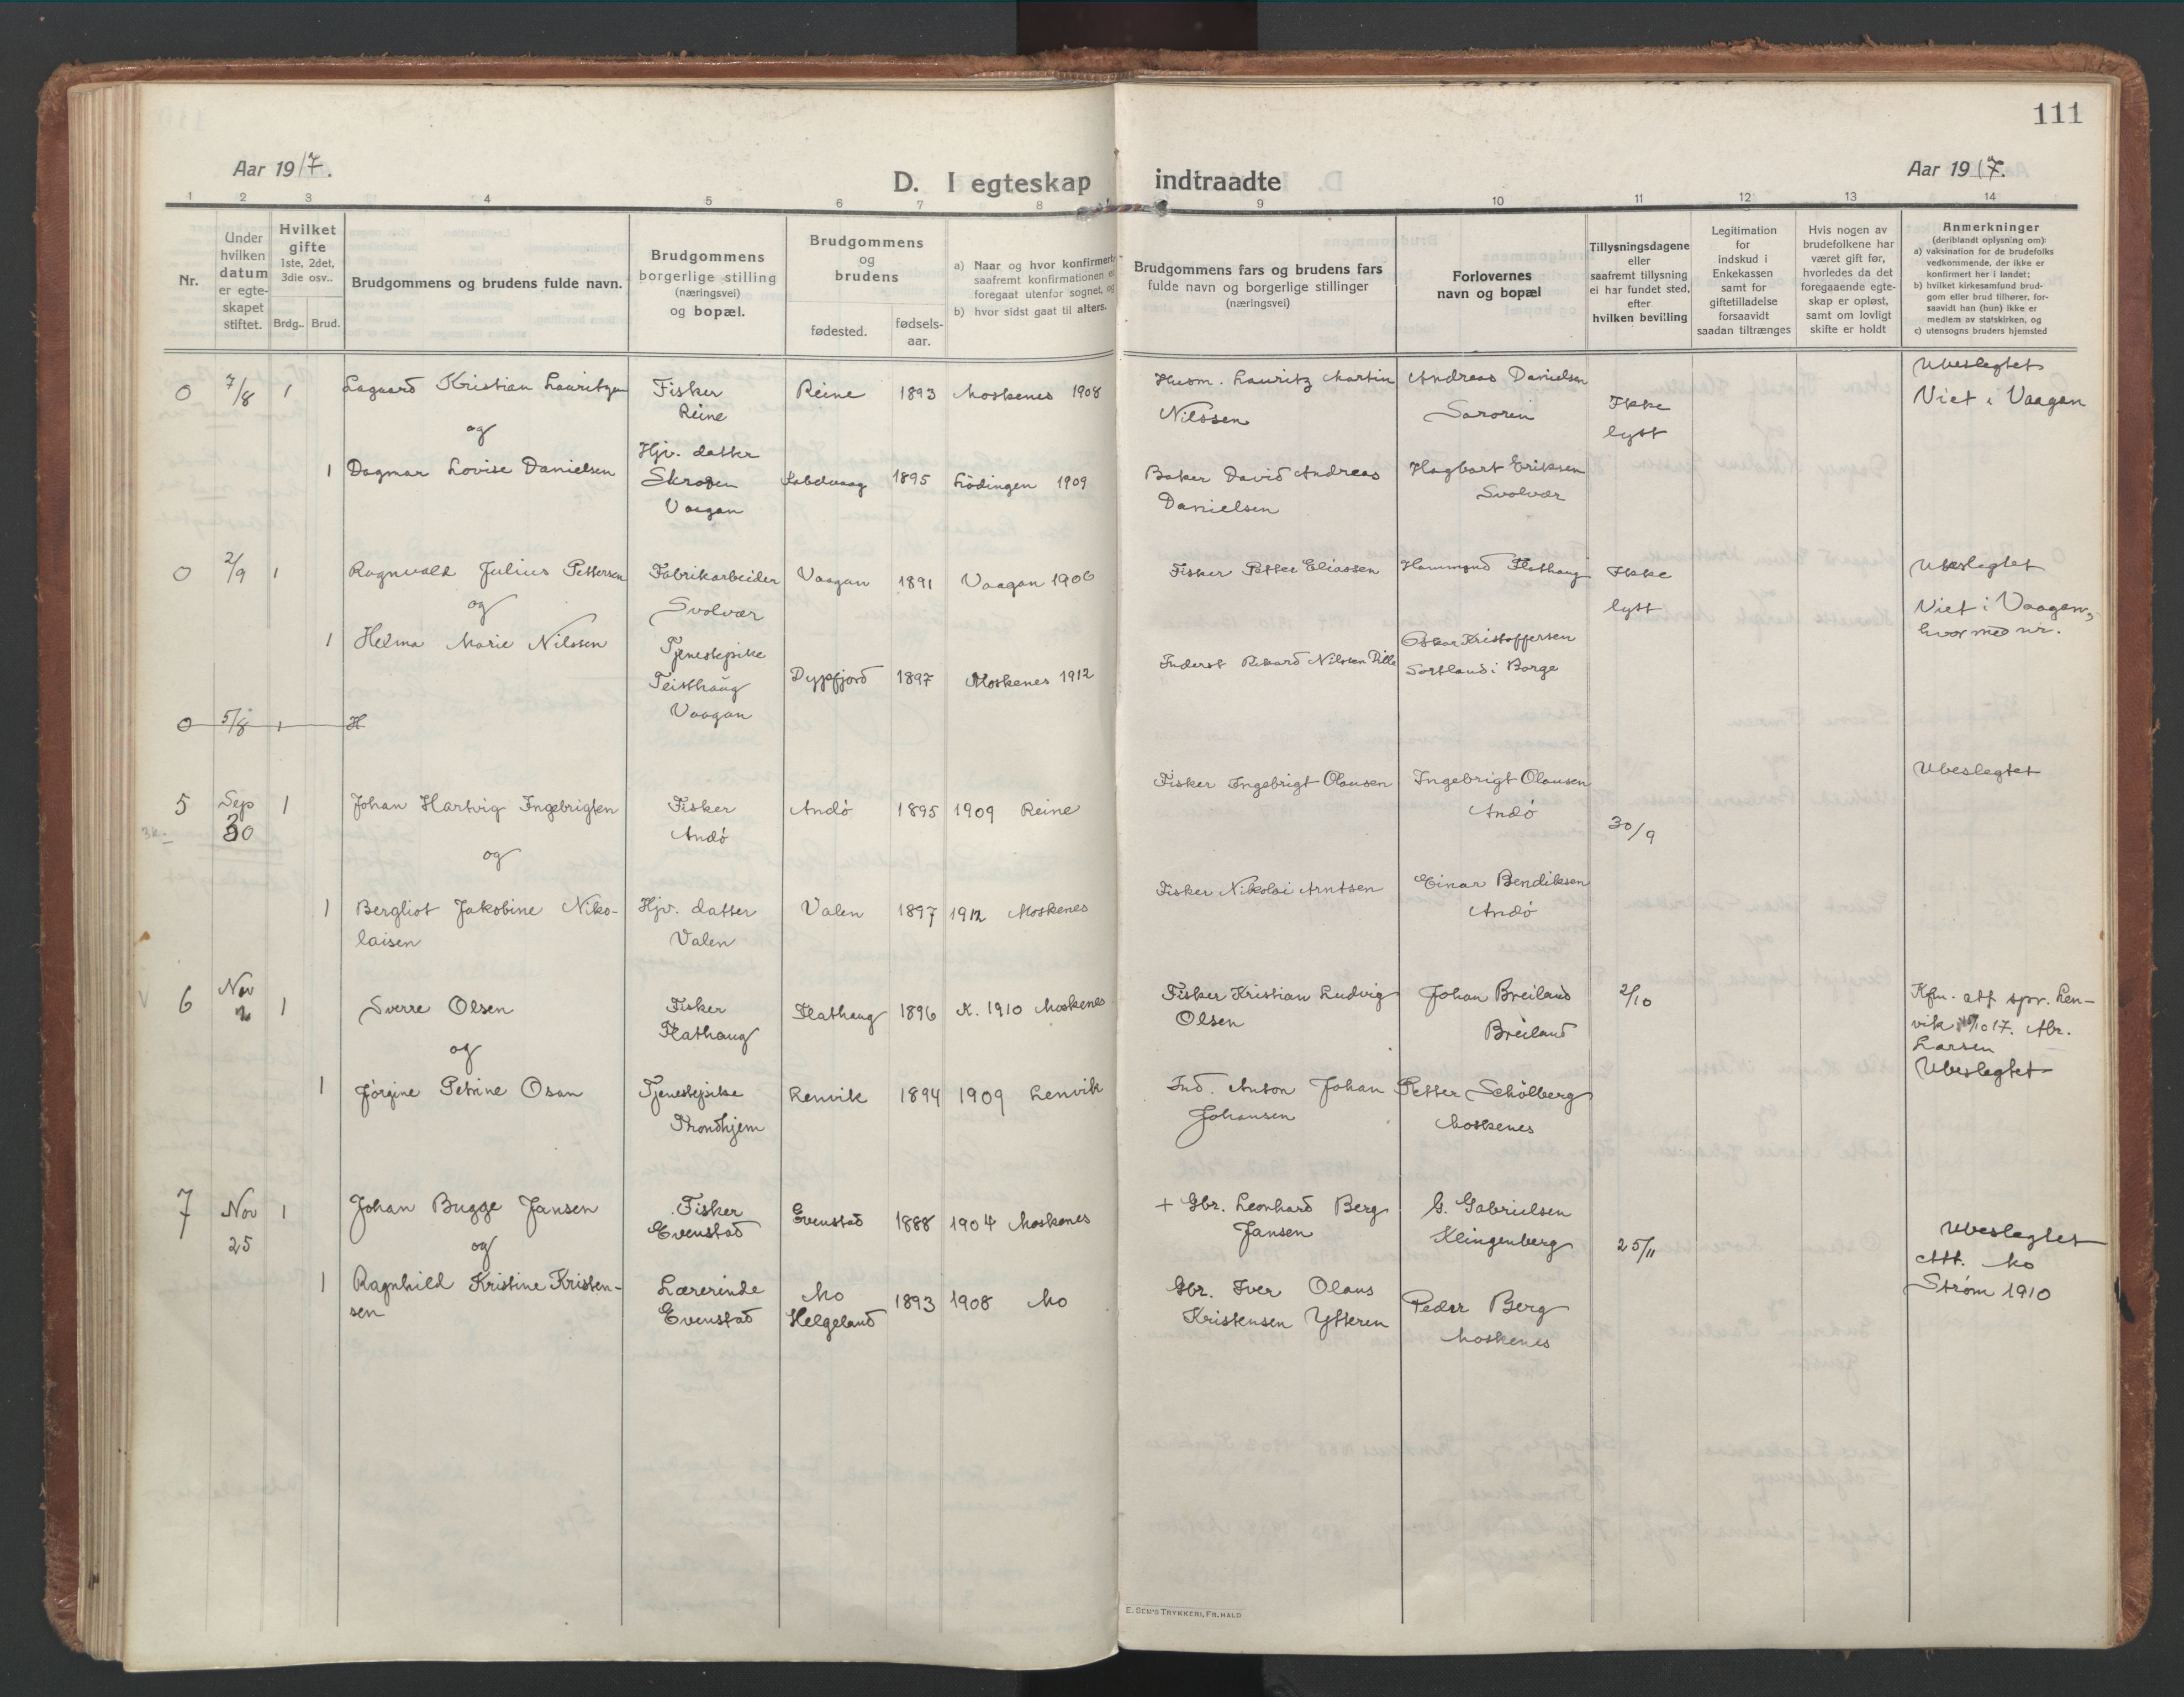 111
Aar 1917.
D. I egteskap indtraadte
Aar 1917.
1 2 3 4 5 6 7 8 9 10 11 12 13 14
Nr.
Under
hvilken
datum
er egte-
skapet
stiftet.
Hvilket
gifte
1ste, 2det,
3die osv..
Brdg.. Brud.
Brudgommens og brudens fulde navn.
Brudgommens
borgerlige stilling
(næringsvei)
og bopæl.
Brudgommens
og
brudens
fødested.
fødsels-
aar.
a) Naar og hvor konfirmert
saafremt konfirmationen er
foregaat utenfor sognet, og
b) hvor sidst gaat til alters.
Brudgommens fars og brudens fars
fulde navn og borgerlige stillinger
(næringsvei)
Forlovernes
navn og bopæl
Tillysningsdagene
eller
saafremt tillysning
ei har fundet sted,
efter
hvilken bevilling
Legitimation
for
indskud i
Enkekassen
samt for
giftetilladelse
forsaavidt
saadan tiltrænges
Hvis nogen av
brudefolkene har
været gift før,
hvorledes da det
foregaaende egte-
skap er opløst,
samt om lovligt
skifte er holdt
Anmerkninger
(deriblandt oplysning om):
a) vaksination for de brudefolks
vedkommende, der ikke er
konfirmert her i landet;
b) hvilket kirkesamfund brud-
gom eller brud tilhører, for-
saavidt han (hun) ikke er
medlem av statskirken, og
c) utensogns bruders hjemsted
0 7/8 1 Lagaard Kristian Lauritzen
og
1 Dagmar Lovise Danielsen
Fisker
Reine
Hjv. datter
Skroven
Vaagan
Reine 1893 Moskenes 1908
Kabelvaag 1895 Lødingen 1909
Husm. Lauritz Martin
Nilssen
Baker David Andreas
Danielsen
Andreas Danielsen
Hagbart Eriksen
Svolvær
Ikke
lyst
Ubeslegtet
Viet i Vaagan
0 2/9 1 Ragnvald Julius Pettersen
og
1 Helma Marie Nilssen
Fabrikarbeider
Svolvær
Tjenestepike
Teisthaug
Vaagan
Vaagan 1891 Vaagan 1906
Dypfjord 1897 Moskenes 1912
Fisker Petter Eliassen
Inderst Rikard Nilssen
Hammond Flathaug
Oskar Kristoffersen
Sortland i Borge
Ikke
lyst
Ubeslegtet
Viet i Vaagan,
hvor med nr.
0 5/8 1 H
5 Sep 30 1 Johan Hartvig Ingebrigten
og
1 Bergliot Jakobine Niko-
laisen
Fisker
Andø
Hjv. datter
Valen
Andø 1895 1909 Reine
Valen 1897 1912 Moskenes
Fisker Ingebrigt Olausen
Fisker Nikolai Arntsen
Ingebrigt Olausen
Andø
Einar Bendiksen
Andø
30/9
Ubeslegtet
6 Nov 2 1 Sverre Olsen
og
1 Jørgine Petrine Osan
Fisker
Flathaug
Tjenestepike
Trondhjem
Flathaug 1896 K. 1910 Moskenes
Lenvik 1894 1909 Lenvik
Fisker Kristian Ludvig
Olsen
Ind. Anton Johan
Johansen
Johan Breiland
Breiland
Petter Schölberg
Moskenes
2/10
Kfm. att spr. Len-
vik /10 17. Abr.
Larsen
Ubeslegtet
7 Nov 25 1 Johan Bugge Jansen
og
1 Ragnhild Kristine Kristen-
sen
Fisker
Evenstad
Lærerinde
Evenstad
Evenstad 1888 1904 Moskenes
Mo
Helgeland 1893 1908 Mo
+ Gbr. Leonhard Berg
Jansen
Gbr. Iver Olaus
Kristensen Ytteren
G. Gabrielsen
Klingenberg
Peder Berg
Moskenes
25/11
Ubeslegtet
Att. Mo
Strøm 1910
E. SEM'S TRYKKERI, FR. HALD